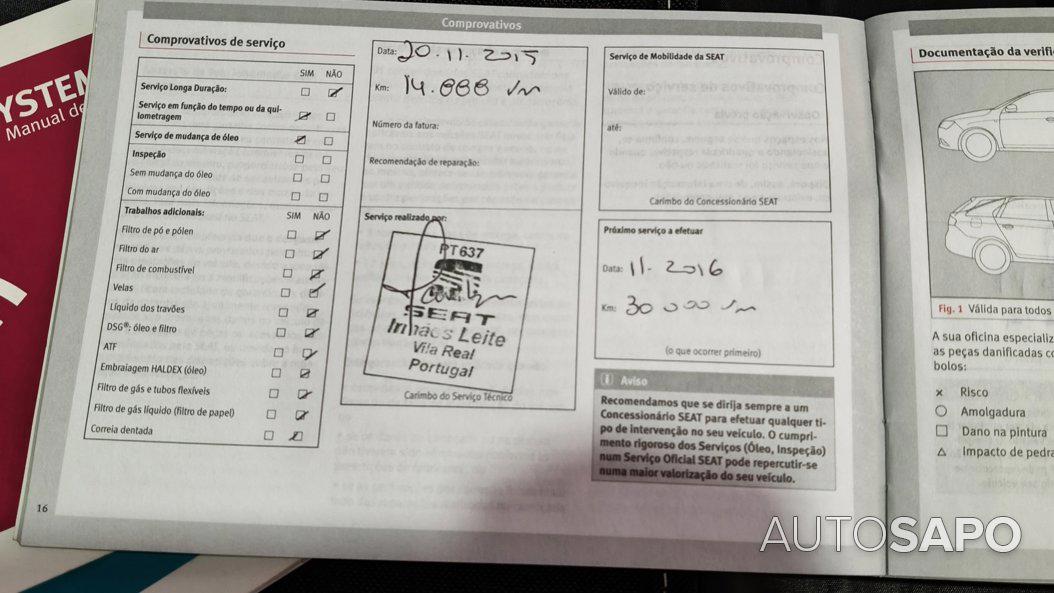 YSTEM
Manual de
Comprovativos
Comprovativos de serviço
SIM NÃO
Serviço Longa Duração:
Serviço em função do tempo ou da qui-
lometragem
Serviço de mudança de óleo
Inspeção
Sem mudança do óleo
Com mudança do óleo
Trabalhos adicionais: SIM NÃO
Filtro de pó e pólen
Filtro do ar
Filtro de combustível
Velas
Líquido dos travões
DSG®: óleo e filtro
ATF
Embraiagem HALDEX (óleo)
Filtro de gás e tubos flexíveis
Filtro de gás líquido (filtro de papel)
Correia dentada
16
Data: 20.11.2015
Km: 14.888 Km
Número da fatura:
Recomendação de reparação:
Serviço realizado por:
PT637
SEAT
Irmãos Leite
Vila Real
Portugal
Carimbo do Serviço Técnico
Serviço de Mobilidade da SEAT
Válido de:
até:
Carimbo do Concessionário SEAT
Próximo serviço a efetuar
Data: 11.2016
Km: 30 000 Km
(o que ocorrer primeiro)
Aviso
Recomendamos que se dirija sempre a um
Concessionário SEAT para efetuar qualquer ti-
po de intervenção no seu veículo. O cumpri-
mento rigoroso dos Serviços (Óleo, Inspeção)
num Serviço Oficial SEAT pode repercutir-se
numa maior valorização do seu veículo.
Documentação da verifi
Fig. 1 Válida para todos
A sua oficina especializ
as peças danificadas co
bolos:
× Risco
○ Amolgadura
□ Dano na pintura
△ Impacto de pedra
AUTOSAPO